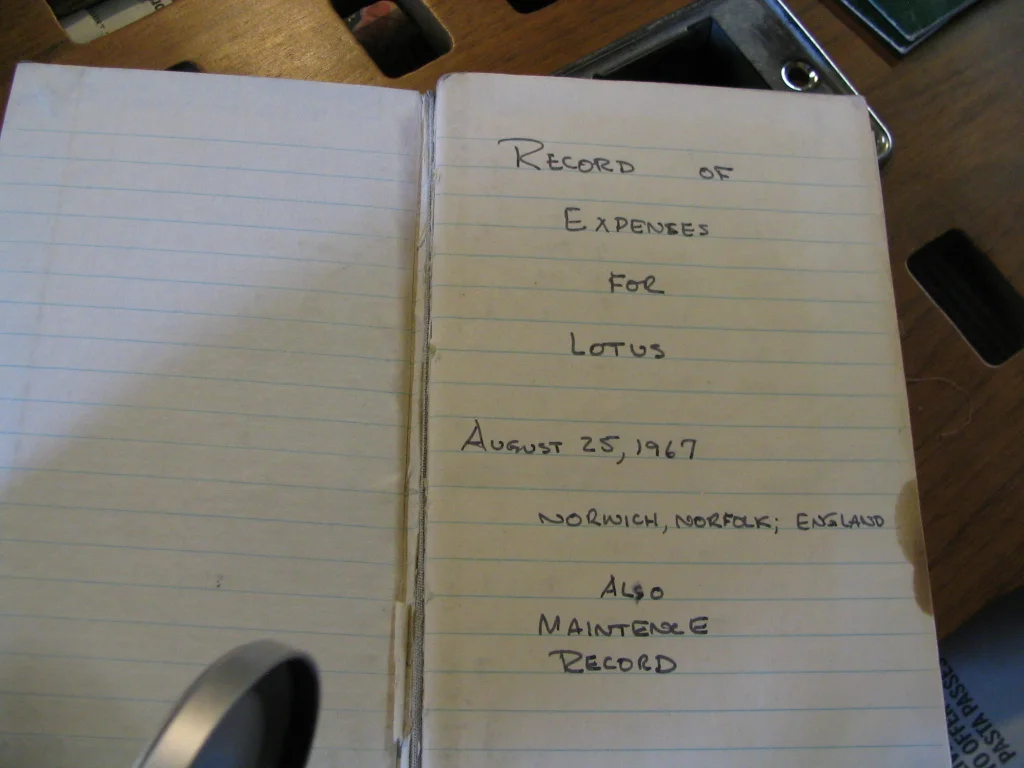 RECORD OF
EXPENSES
FOR
LOTUS
AUGUST 25, 1967
NORWICH, NORFOLK; ENGLAND
ALSO
MAINTENCE
RECORD
TO OFFER
PASTA PASSES